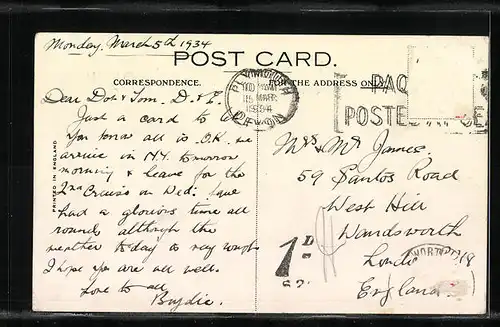 Monday, March 5th 1934
POST CARD.
CORRESPONDENCE.
FOR THE ADDRESS ONLY
PLYMOUTH
DEVON
PAQ
POSTED AT SE
PRINTED IN ENGLAND
Dear Dot & Tom. D & E.
Just a card to let
you know all is O.K. we
arrive in N.Y. tomorrow
morning & leave for the
2nd Cruise on Wed: have
had a glorious time all
round, although the
weather today is very rough
I hope you are all well.
Love to all
Brydie.
Mrs & Mr James.
59 Santos Road
West Hill
Wandsworth
London
England.
1D